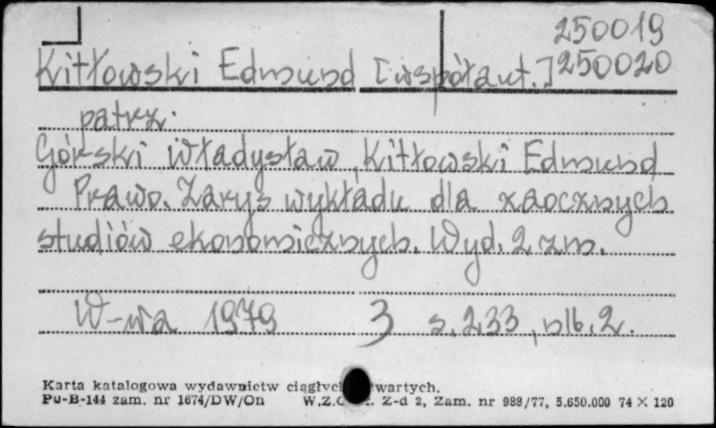 250019
Kitłowski Edmund [współaut.] 250020
patrz:
Górski Władysław, Kitłowski Edmund
Prawo. Zarys wykładu dla zaocznych
studiów ekonomicznych. Wyd. 2 zm.
W-wa 1979 3 s. 233, nlb. 2.
Karta katalogowa wydawnictw ciągłych wartych.
Pu-B-144 zam. nr 1674/DW/On W.Z. Z-d 2, Zam. nr 988/77, 5.650.000 74 × 120